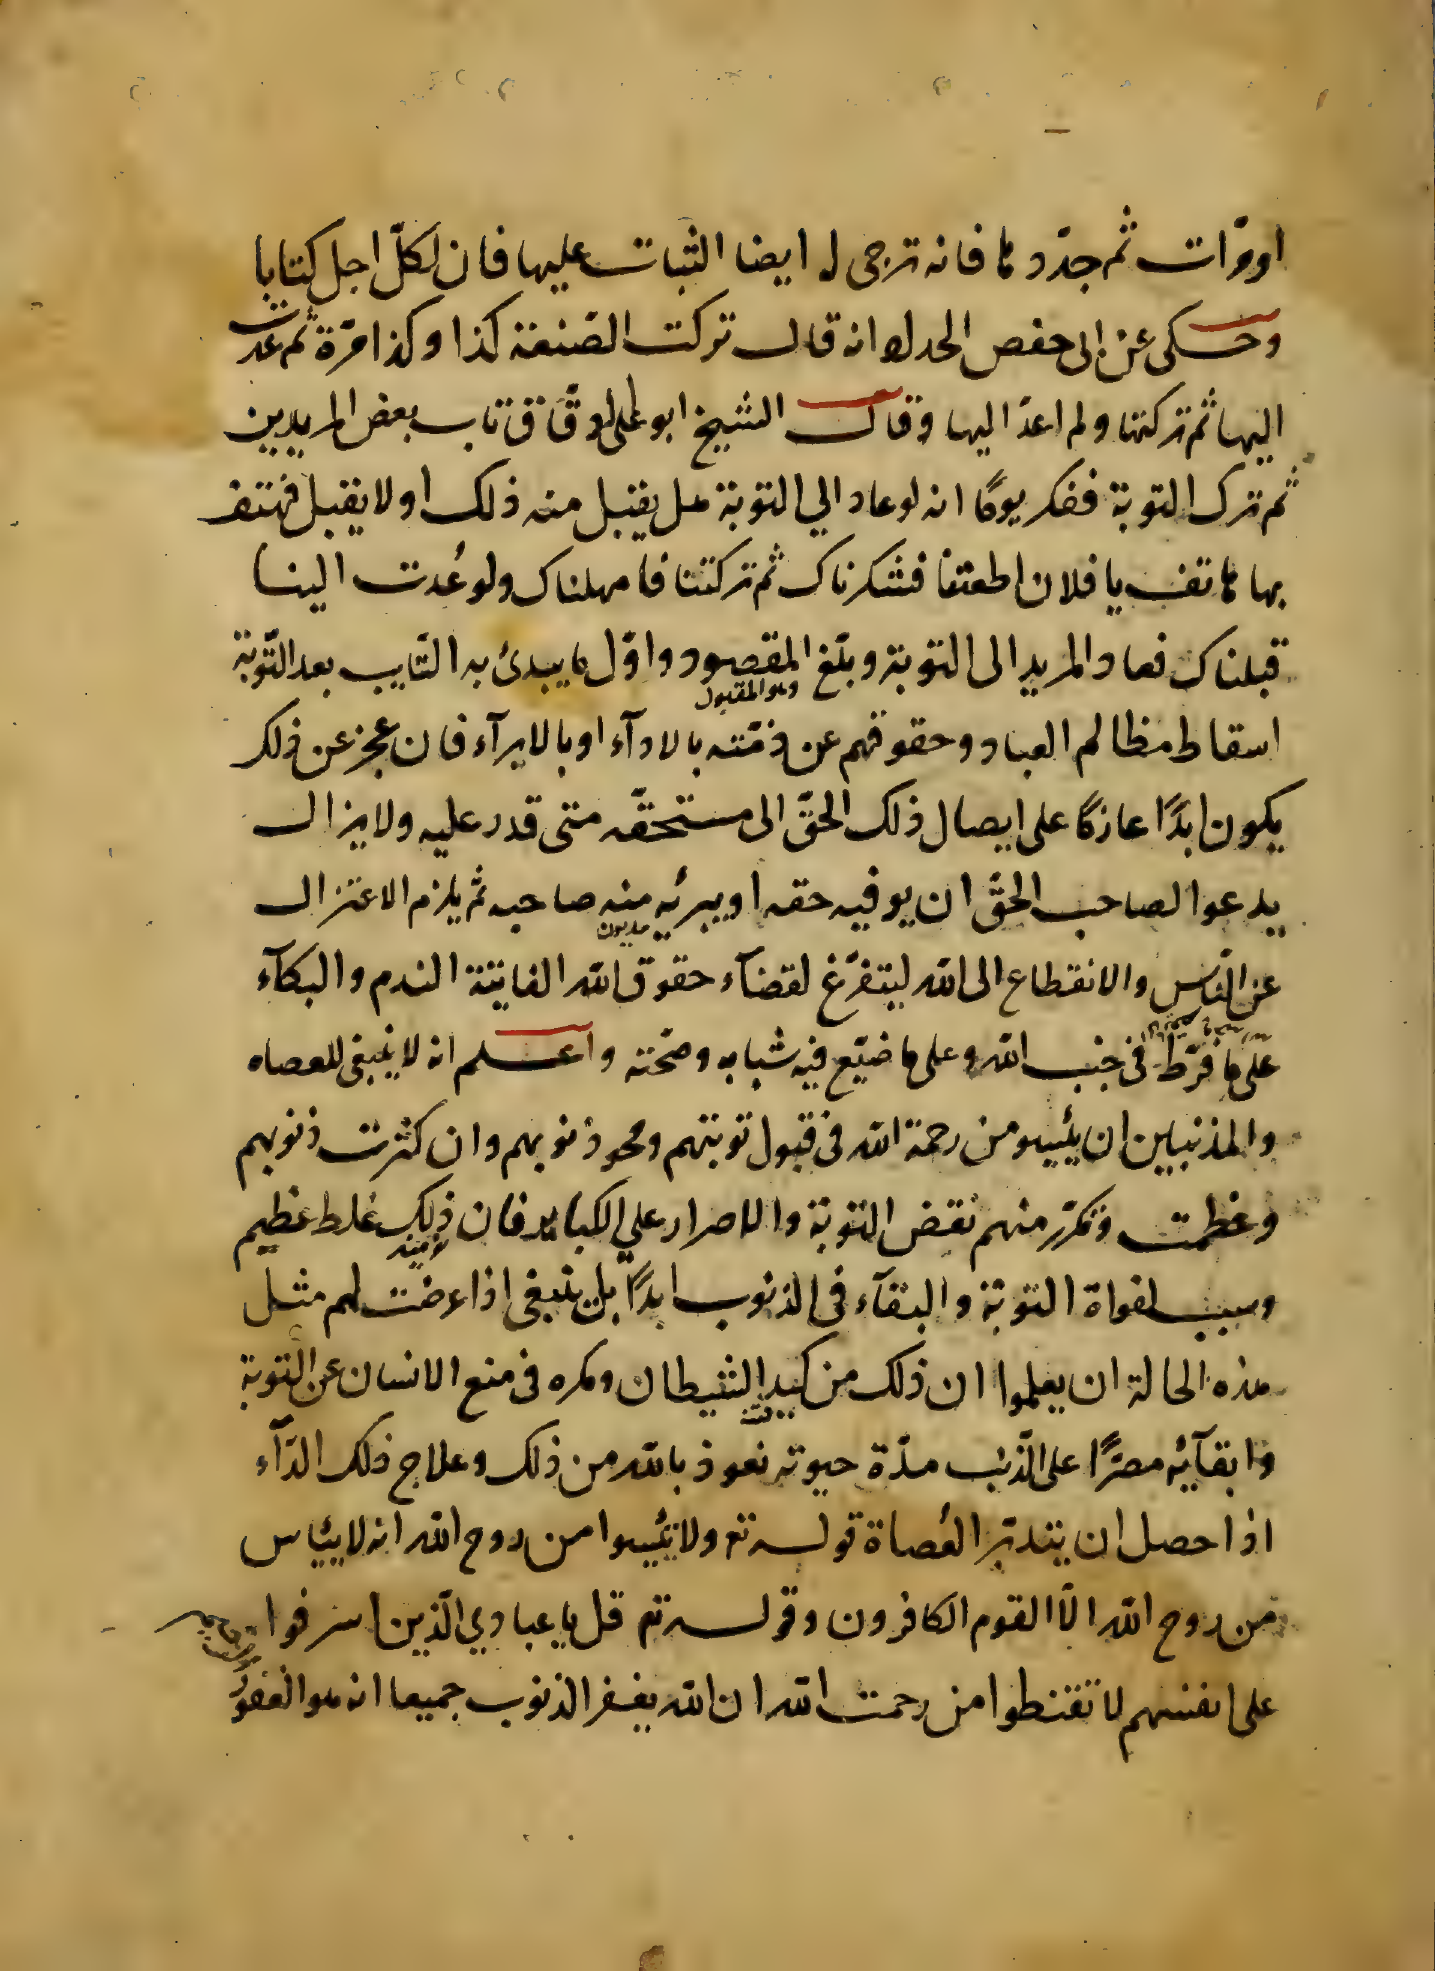 او مرّات ثم جدّدها فانه ترجى له ايضا الثبات عليها فان لكلّ اجل كتابا
وحكى عن ابى حفص الحداد انه قال تركت الصّنعة كذا وكذا مرّة ثم عدت
اليها ثم تركتها ولم اعدّ اليها وقال الشيخ ابو على الدقّاق تاب بعض المريدين
ثم ترك التوبة ففكر يومًا انه لو عاد الي التوبة هل يقبل منه ذلك او لا يقبل فهتف
بها هاتف يا فلان اطعتنا فشكرناك ثم تركتنا فامهلناك ولو عُدت الينا
قبلناك فعاد المريد الى التوبة وبلّغ المقصود واوّل ما يبدئ به التّايب بعد التّوبة
وهو المقبول
اسقاط مظالم العباد وحقوقهم عن ذمّته بالادآء او بالابرآء فان عجز عن ذلك
يكون ابدًا عازمًا على ايصال ذلك الحقّ الى مستحقّه متى قدر عليه ولا يزال
يدعوا لصاحب الحقّ ان يوفيه حقه او يبرئه منه صاحبه ثمّ يلزم الاعتزال
مديون
عن النّاس والانقطاع الى الله ليتفرّغ لقضآء حقوق الله الفايتة الندم والبكآء
على ما فرّط فى جنب الله وعلى ما ضيّع فيه شبابه وصحّته واعلم انه لا ينبغى للعصاه
والمذنبين ان يئيسو من رحمة الله فى قبول توبتهم ومحو ذنوبهم وان كثرت ذنوبهم
وعظمت وتكرّر منهم نقض التوبة والاصرار علي الكباير فان ذلك غلط عظيم
وسبب لفواة التوبة والبقآء فى الذنوب ابدًا بل ينبغى اذا عرضت لهم مثل
هذه الحالة ان يعلموا ان ذلك من كيد الشيطان ومكره فى منع الانسان عن التوبة
وابقآئه مصرًّا على الذّنب مدّة حيوته نعوذ بالله من ذلك وعلاج ذلك الدّآء
اذا حصل ان يتدبّر العُصاة قوله تع ولا تيئسوا من روح الله انه لا ييئاس
من روح الله الّا القوم الكافرون وقوله تع قل يا عبادي الّذين اسرفوا
على انفسهم لا تقنطوا من رحمت الله ان الله يغفر الذنوب جميعا انه هو الغفور